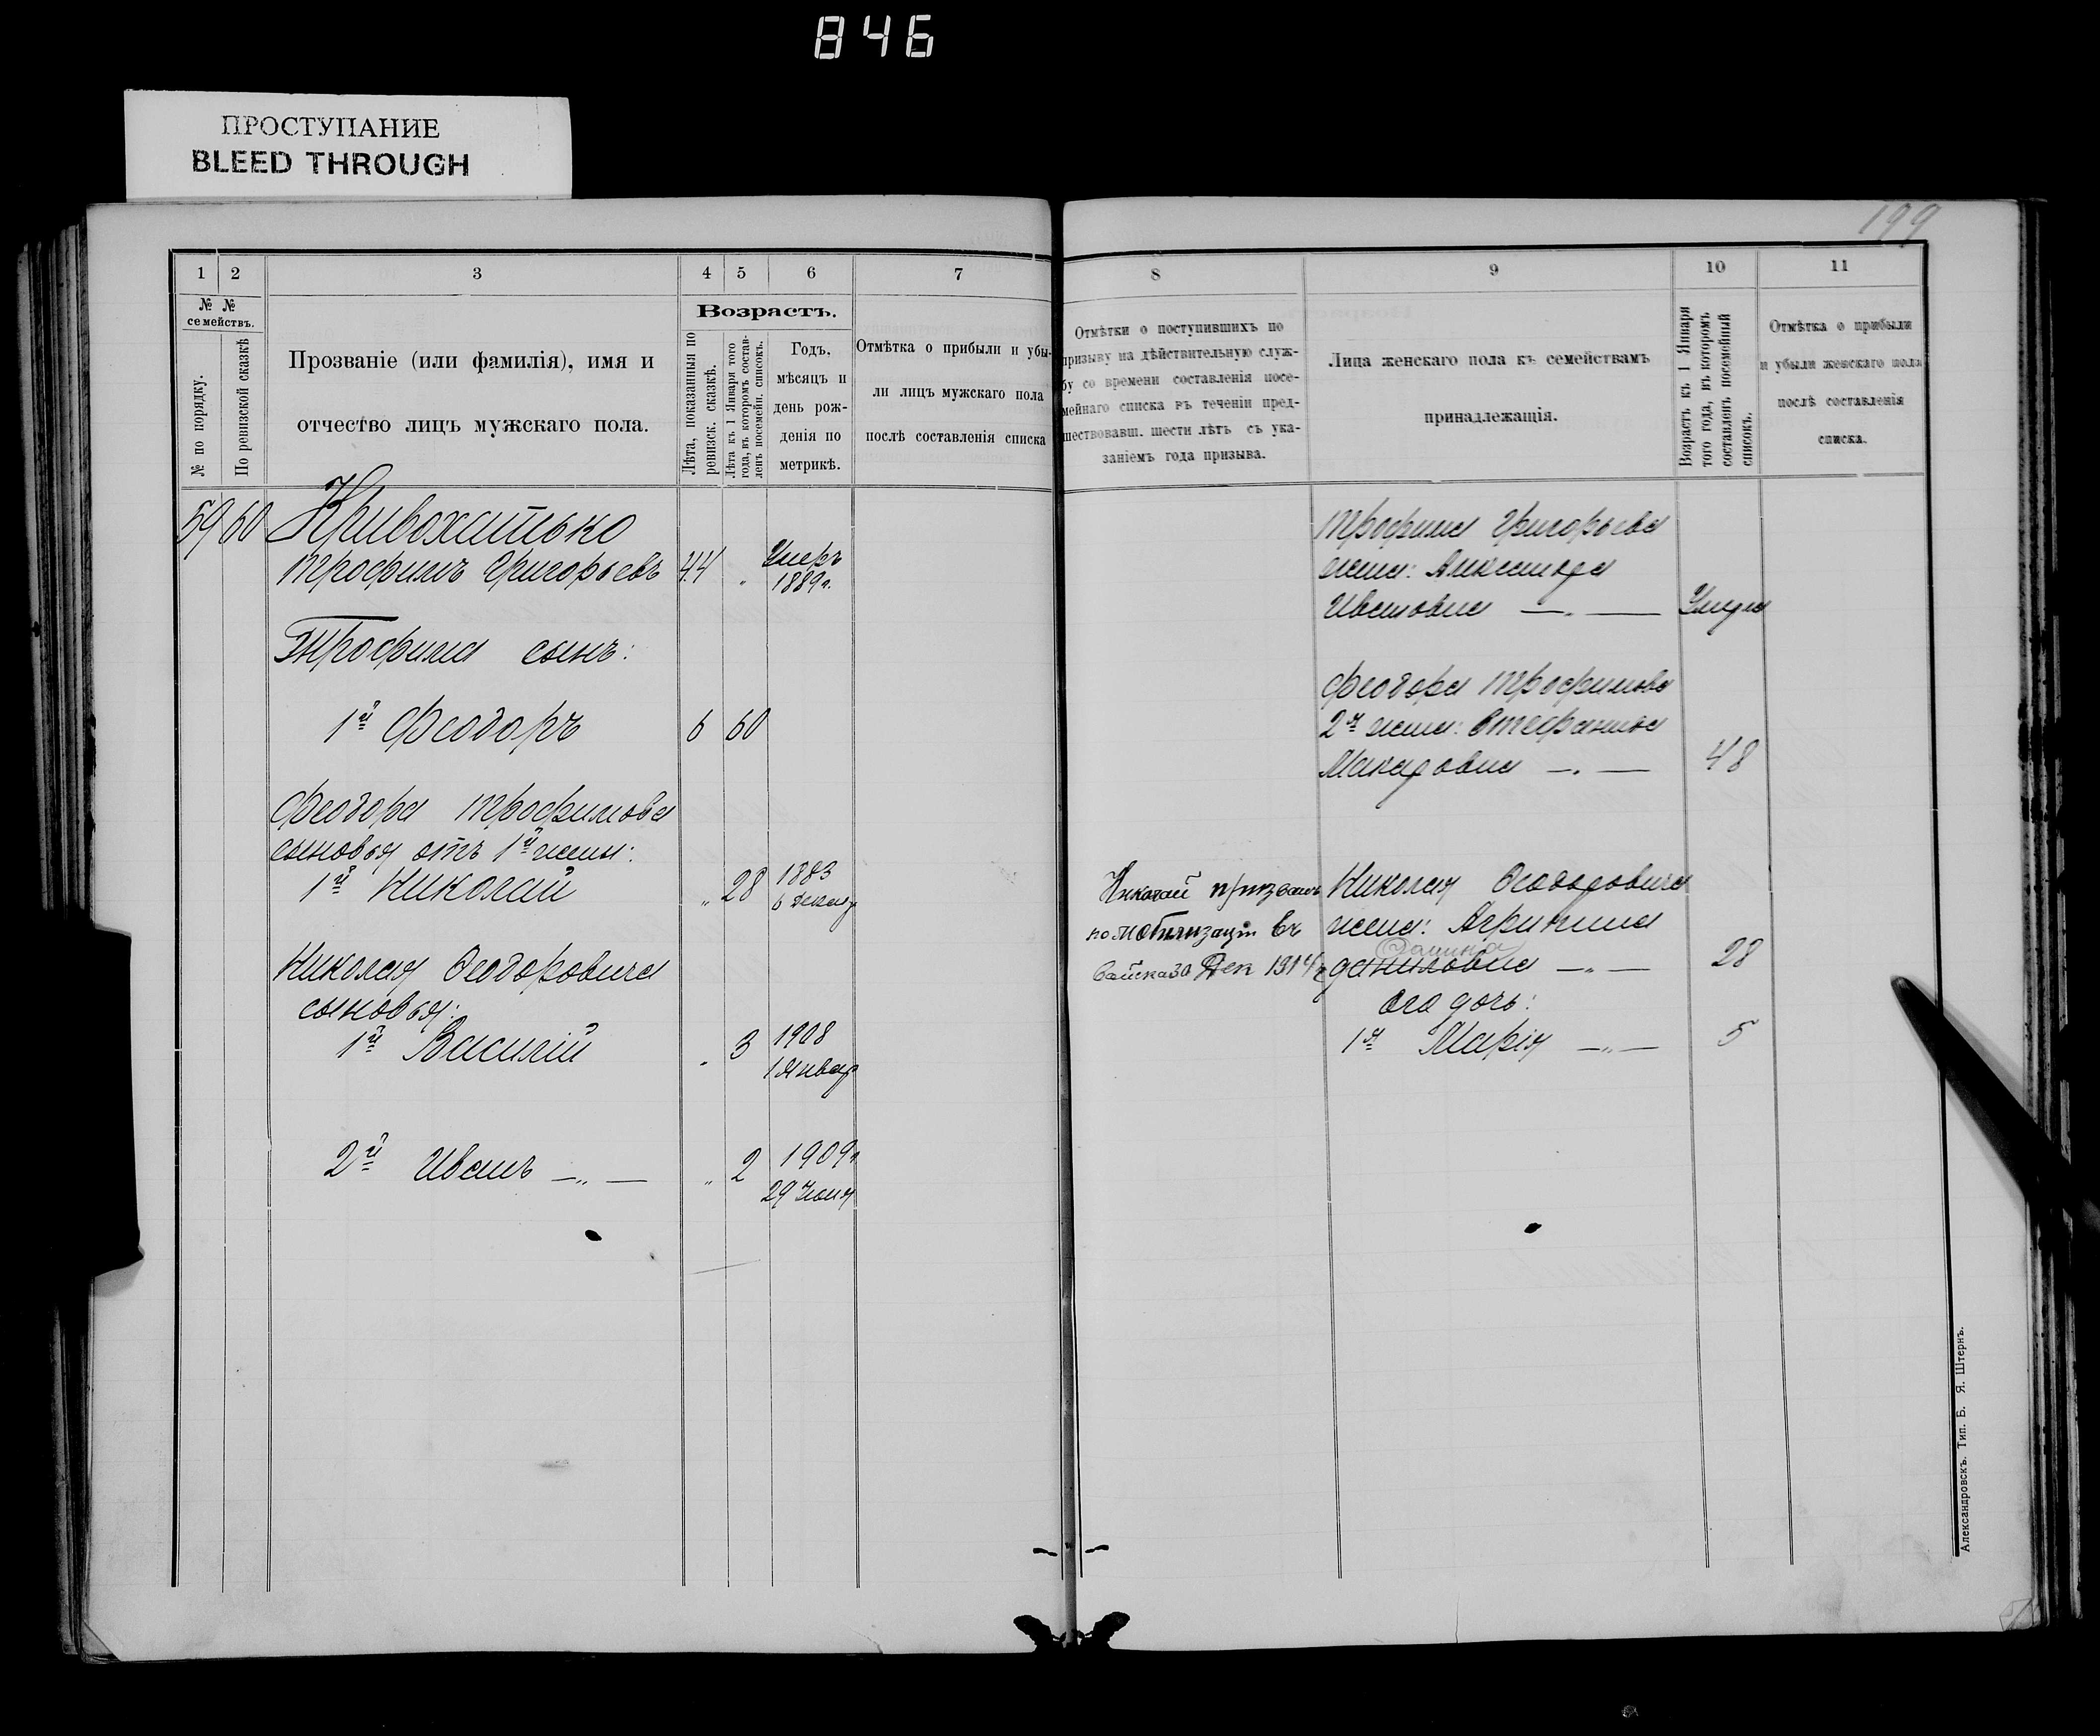 846
ПРОСТУПАНИЕ
BLEED THROUGH
199
1 2 3 4 5 6 7
№ № семействъ.
№ по порядку.
По ревизской сказкѣ
Прозваніе (или фамилія), имя и
отчество лицъ мужскаго пола.
Возрастъ.
Лѣта, показанныя по
ревизск. сказкѣ.
Лѣта къ 1 Января того
года, въ которомъ состав-
ленъ посемейн. списокъ.
Годъ,
мѣсяцъ и
день рож-
денія по
метрикѣ.
Отмѣтка о прибыли и убы-
ли лицъ мужскаго пола
послѣ составленія списка
59 60 Кривохатько
Трофимъ Григорьевъ 44 Умеръ
1889г.
Трофима сынъ:
1й Феодоръ 6 60
Феодора Трофимова
сыновья отъ 1й жены:
1й Николай " 28 1883
6 Декаб
Николая Феодоровича
сыновья:
1й Василій " 3 1908
1 Январ
2й Иванъ —„— " 2 1909г
29 Июня
8 9 10 11
Отмѣтки о поступившихъ по
призыву на дѣйствительную служ-
бу со времени составленія посе-
мейнаго списка въ теченіи пред-
шествовавш. шести лѣтъ съ ука-
заніемъ года призыва.
Лица женскаго пола къ семействамъ
принадлежащія.
Возрастъ къ 1 Января
того года, въ которомъ
составленъ посемейный
списокъ.
Отмѣтка о прибыли
и убыли женскаго пола
послѣ составленія
списка.
Трофима Григорьева
жена: Александра
Ивановна —„— Умерла
Феодора Трофимова
2я жена: Стефанида
Макаровна —„— 48
Николай призванъ
по мобилизаціи въ
войска 30 Дек 1914 г
Николая Феодоровича
жена: Агрипина
Даниловна —„— 28
Его дочь:
1я Марія —„— 5
Александровскъ. Тип. Б. Я. Штернъ.